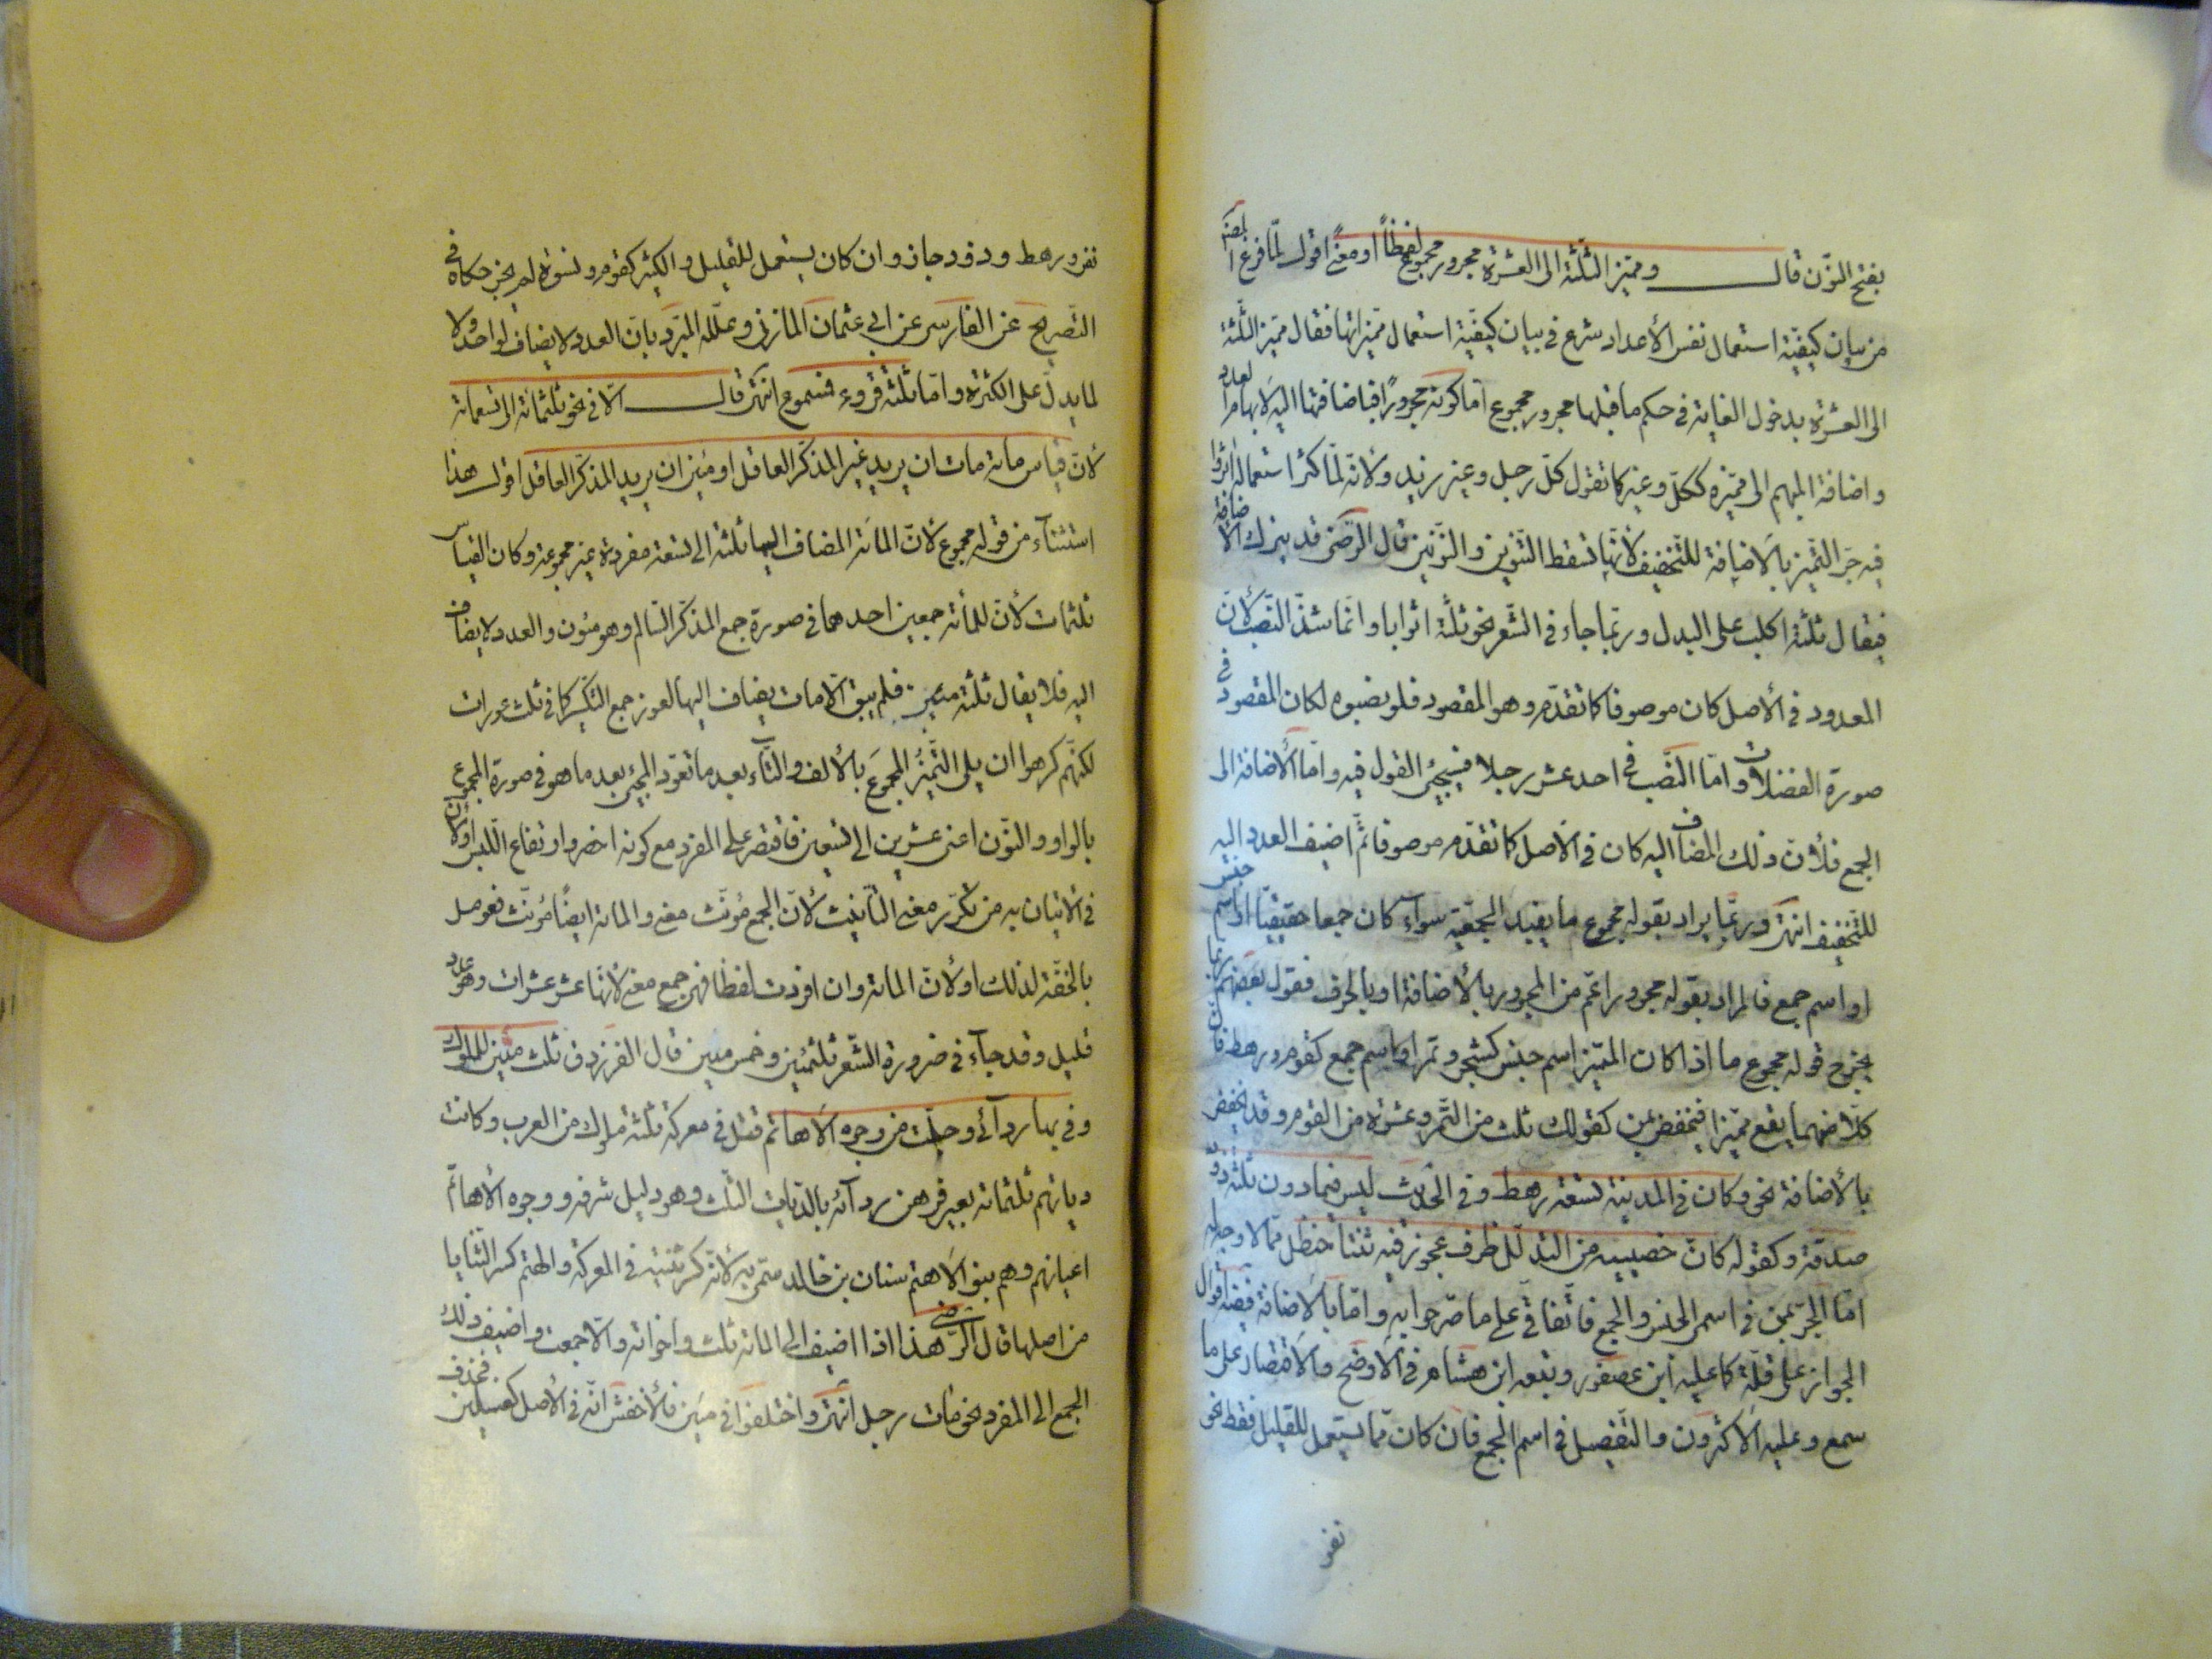 بفتح النّون قال ومميّز الثّلثة الى العشرة مجرور مجموع لفظاً او معنىً اقول لمّا فرغ المصنّف
من بيان كيفيّة استعمال نفس الأعداد شرع فى بيان كيفيّة استعمال مميّزاتها فقال مميّز الثّلثة
الى العشرة بدخول الغاية فى حكم ما قبلها مجرور مجموع امّا كونه مجرورًا فباضافتها اليه لابهام العدد
واضافة المبهم الى مميّزه ككلّ وغير كما تقول كلّ رجل وغير زيد ولأنّه لمّا كثر استعماله اثروا
فيه جرّ التّميز بالاضافة للتّخفيف لأنّها تسقط التّنوين والنّونين قال الرّضى قد يترك الأضافة
فيقال ثلثة اكلب على البدل وربّما جاء فى الشّعر نحو ثلثة اثوابا وانّما شذّ النّصب لأنّ
المعدود فى الأصل كان موصوفا كما تقدّم وهو المقصود فلو نصبوه لكان المقصود فى
صورة الفضلات وامّا النّصب فى احد عشر رجلا فسيجىء القول فيه وامّا الأضافة الى
الجمع فلأنّ ذلك المضاف اليه كان فى الأصل كما تقدّم موصوفا ثمّ اضيف العدد اليه
للتّخفيف انتهى وربّما يراد بقوله مجموع ما يفيد الجمعيّة سوآء كان جمعا حقيقيّا او اسم جنس
او اسم جمع فالمراد بقوله مجرور اعمّ من المجرور بالأضافة او بالحرف فقول بعضهم ربّما
يخرج قوله مجموع ما اذا كان المميّز اسم جنس كشجر وتمر او اسم جمع كقوم ورهط فانّ
كلّا منهما يقع مميّزا فيخفض بمن كقولك ثلث من التّمر وعشرة من القوم وقد يخفض
بالأضافة نحو وكان فى المدينة تسعة رهط وفى الحديث ليس فيما دون ثلثة ذود
صدقة وكقوله كانّ خصييه من التدلّل ظرف عجوز فيه ثنتا حنظل ممّا لا وجه له
امّا الجرّ بمن فى اسمى الجنس والجمع فاتّفاقى على ما صرّحوا به وامّا بالأضافة ففيه اقوال
الجواز على قلّة كما عليه ابن عصفور وتبعه ابن هشام فى الأوضح والأقتصار على ما
سمع وعليه الأكثرون والتّفصيل فى اسم الجمع فان كان ممّا يستعمل للقليل فقط نحو
نفر
نفر ورهط وذود جاز وان كان يستعمل للقليل والكثير كقوم ونسوة لم يجز حكاه فى
التّصريح عن الفارسى عن ابى عثمان المازنى وعلّله المبرّد بانّ العدد لا يضاف لواحد ولا
لما يدلّ على الكثرة وامّا ثلثة قروء فمسموع انتهى قال الّا فى نحو ثلثمائة الى تسعمائة
لأنّ قياس مائة مات ان يريد غير المذكّر العاقل او مئين ان يريد المذكّر العاقل اقول هذا
استثنآء من قوله مجموع لأنّ المائة المضاف اليها ثلثة الى تسعة مفردة غير مجموعة وكان القياس
ثلثمات لأنّ للمأئة جمعين احدهما فى صورة جمع المذكّر السّالم وهو مئون والعدد لا يضاف
اليه فلا يقال ثلثة مئين فلم يبق الّا مات يضاف اليها لعوز جمع التّكسير كما فى ثلث عورات
لكنّهم كرهوا ان يلى التّميّز المجموع بالألف والتّآء بعد ما تعوّد المجىء بعد ما هو فى صورة المجموع
بالواو والنّون اعنى عشرين الى تسعين فاقتصر على المفرد مع كونه اخصر وارتفاع اللّبس او لأنّ
فى الاتيان به من تكرّر معنى التّأنيث لأنّ الجمع مؤنّث معنى والمائة ايضًا مؤنّث فعومل
بالخفّة لذلك او لأنّ المائة وان افردت لفظا فهى جمع معنى لأنّها عشر عشرات وهو عدد
قليل وقد جآء فى ضرورة الشّعر ثلثمئين وخمس مئين قال الفرزدق ثلث مئين للملوك
وفى بها ردآئى وجلّت من وجوه الأهاتم قتل فى معركة ثلثة ملوك من العرب وكانت
دياتهم ثلثمائة بعير فرهن ردآئه بالدّيات الثّلث وهو دليل شرفه ووجوه الأهاتم
اعيانهم وهم بنو الأهتم سنان بن خالد سمّى به لأنّه كسر ثنيته فى المعركة والهتم كسر الثّنايا
من اصلها قال الرّضى هذا اذا اضيف الى المائة ثلث واخواته والّا جمعت واضيف ذلك
الجمع الى المفرد نحو مات رجل انتهى واختلفوا فى مئين فالأخفش انّه فى الأصل كغسلين فحذف